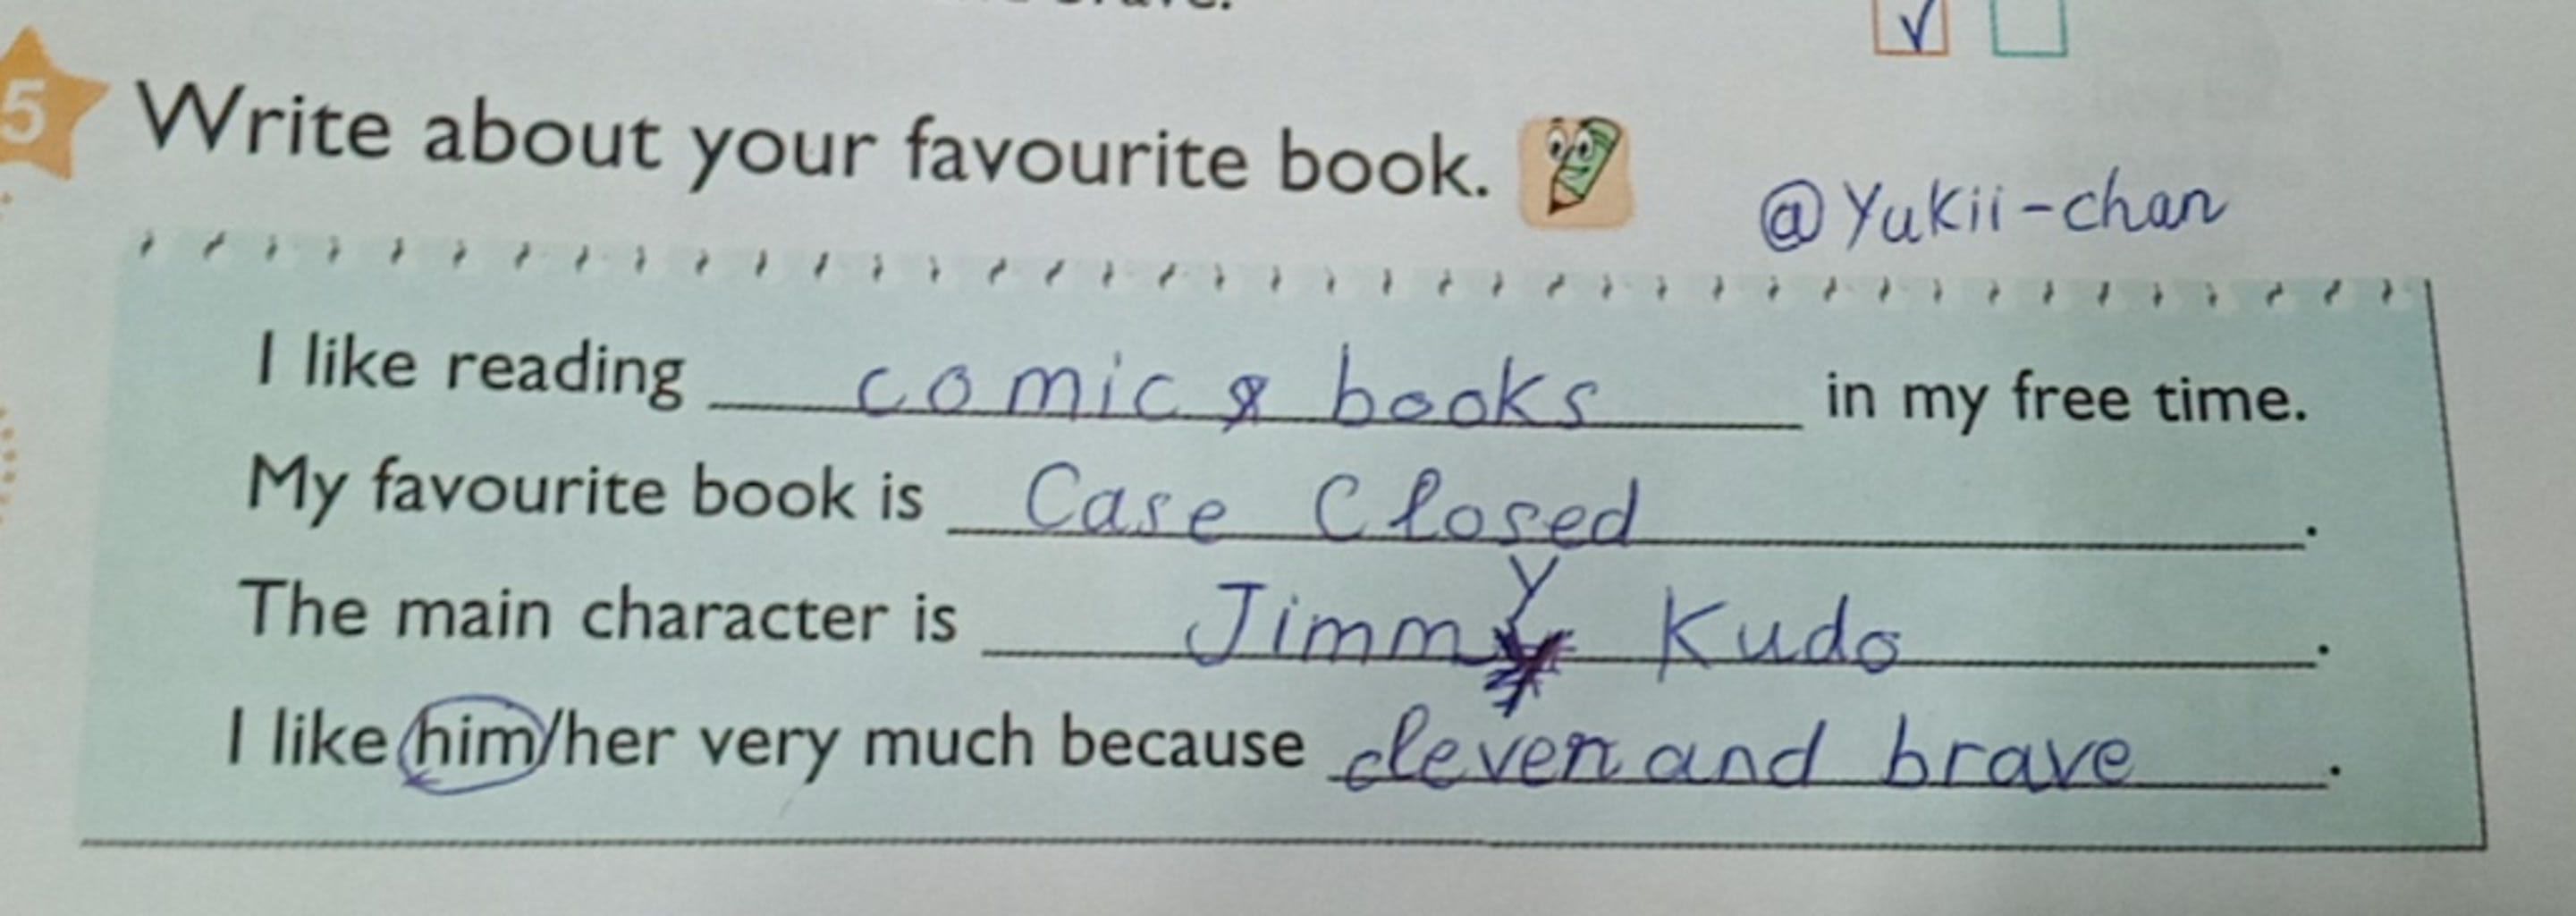 5 Write about your favourite book.
@Yukii-chan
I like reading comic books in my free time.
My favourite book is Case Closed.
The main character is Jimmy Kudo.
I like him/her very much because clever and brave.